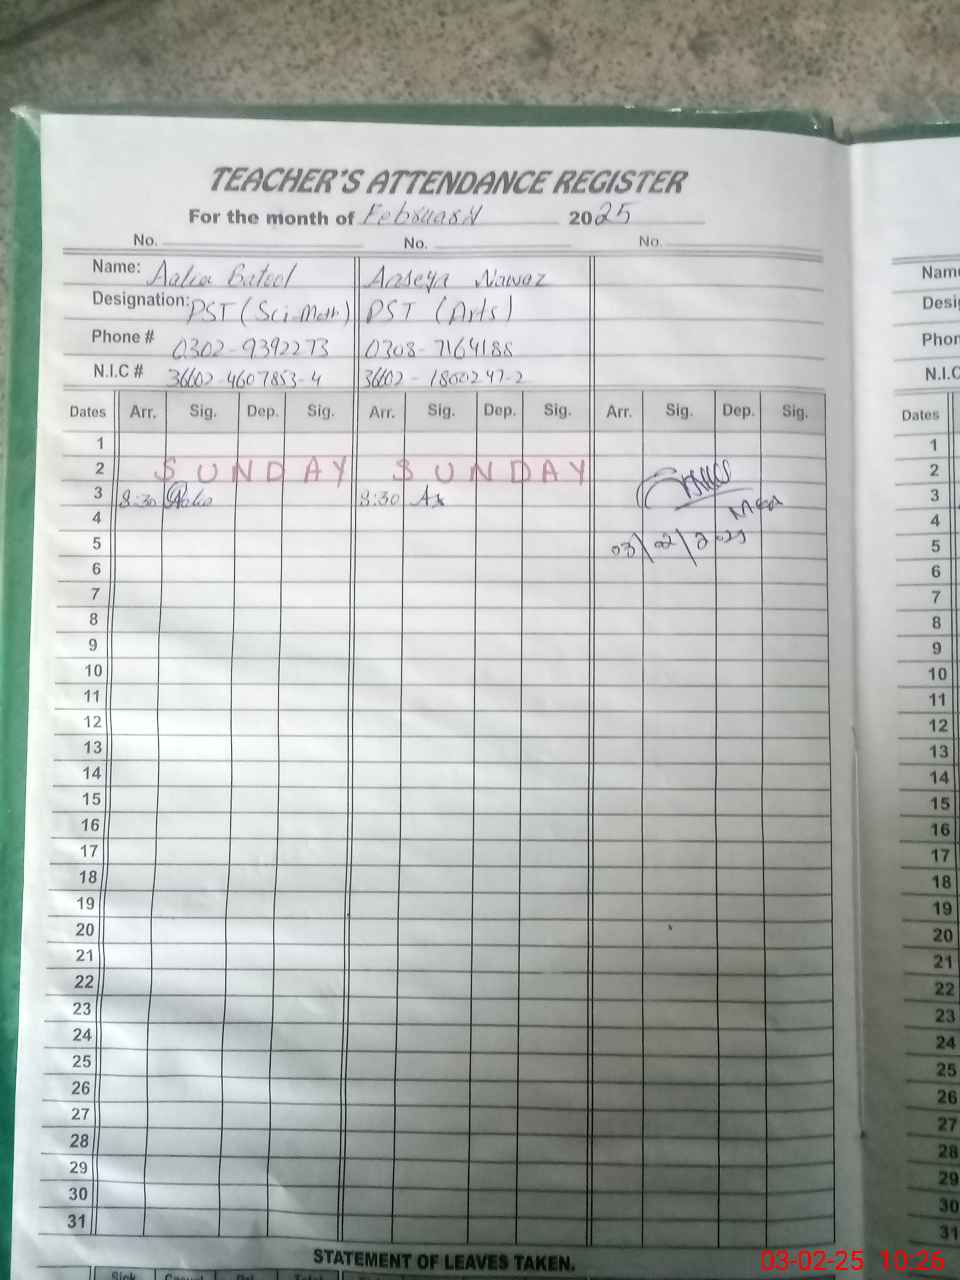 TEACHER'S ATTENDANCE REGISTER
For the month of February 2025
No. No. No.
Name: Aalia Batool Aaseya Nawaz
Designation: PST (Sci-Math) PST (Arts)
Phone # 0302-9392273 0308-7164188
N.I.C # 36602-4607853-4 36602-1800247-2
Dates Arr. Sig. Dep. Sig. Arr. Sig. Dep. Sig. Arr. Sig. Dep. Sig.
1
2 SUNDAY SUNDAY
3 8:30 Aalia 8:30
4
5 03/02/2025
6
7
8
9
10
11
12
13
14
15
16
17
18
19
20
21
22
23
24
25
26
27
28
29
30
31
STATEMENT OF LEAVES TAKEN.
Sick Casual Total
Name
Desig
Phon
N.I.C
Dates
1
2
3
4
5
6
7
8
9
10
11
12
13
14
15
16
17
18
19
20
21
22
23
24
25
26
27
28
29
30
31
03-02-25 10:26